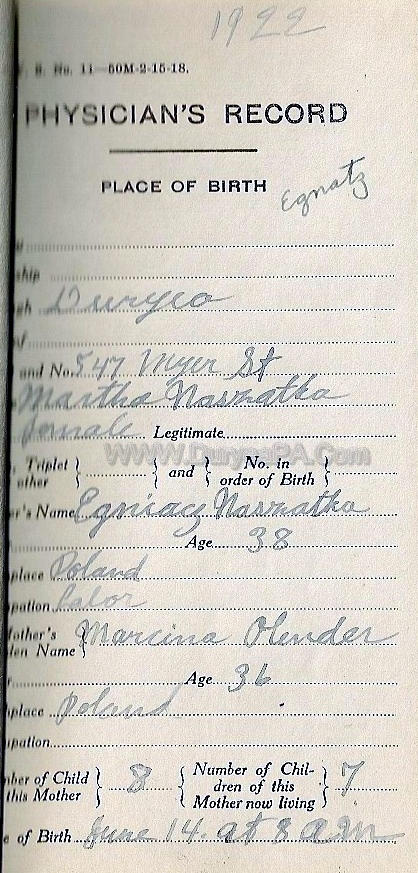 1922
S. No. 11—50M-2-15-18.
PHYSICIAN'S RECORD
PLACE OF BIRTH
Egnatz
ship
Duryea
and No. 547 Myer St
Martha Nawratka
female Legitimate
Triplet other } and { No. in order of Birth }
er's Name Egniacy Nawratka
Age 38
place Poland
pation Labor
Mother's den Name } Marcina Olender
Age 36
place Poland
pation
mber of Child this Mother } 8 { Number of Chil- dren of this Mother now living } 7
e of Birth June 14. at 8 am
WWW.DuryeaPA.Com